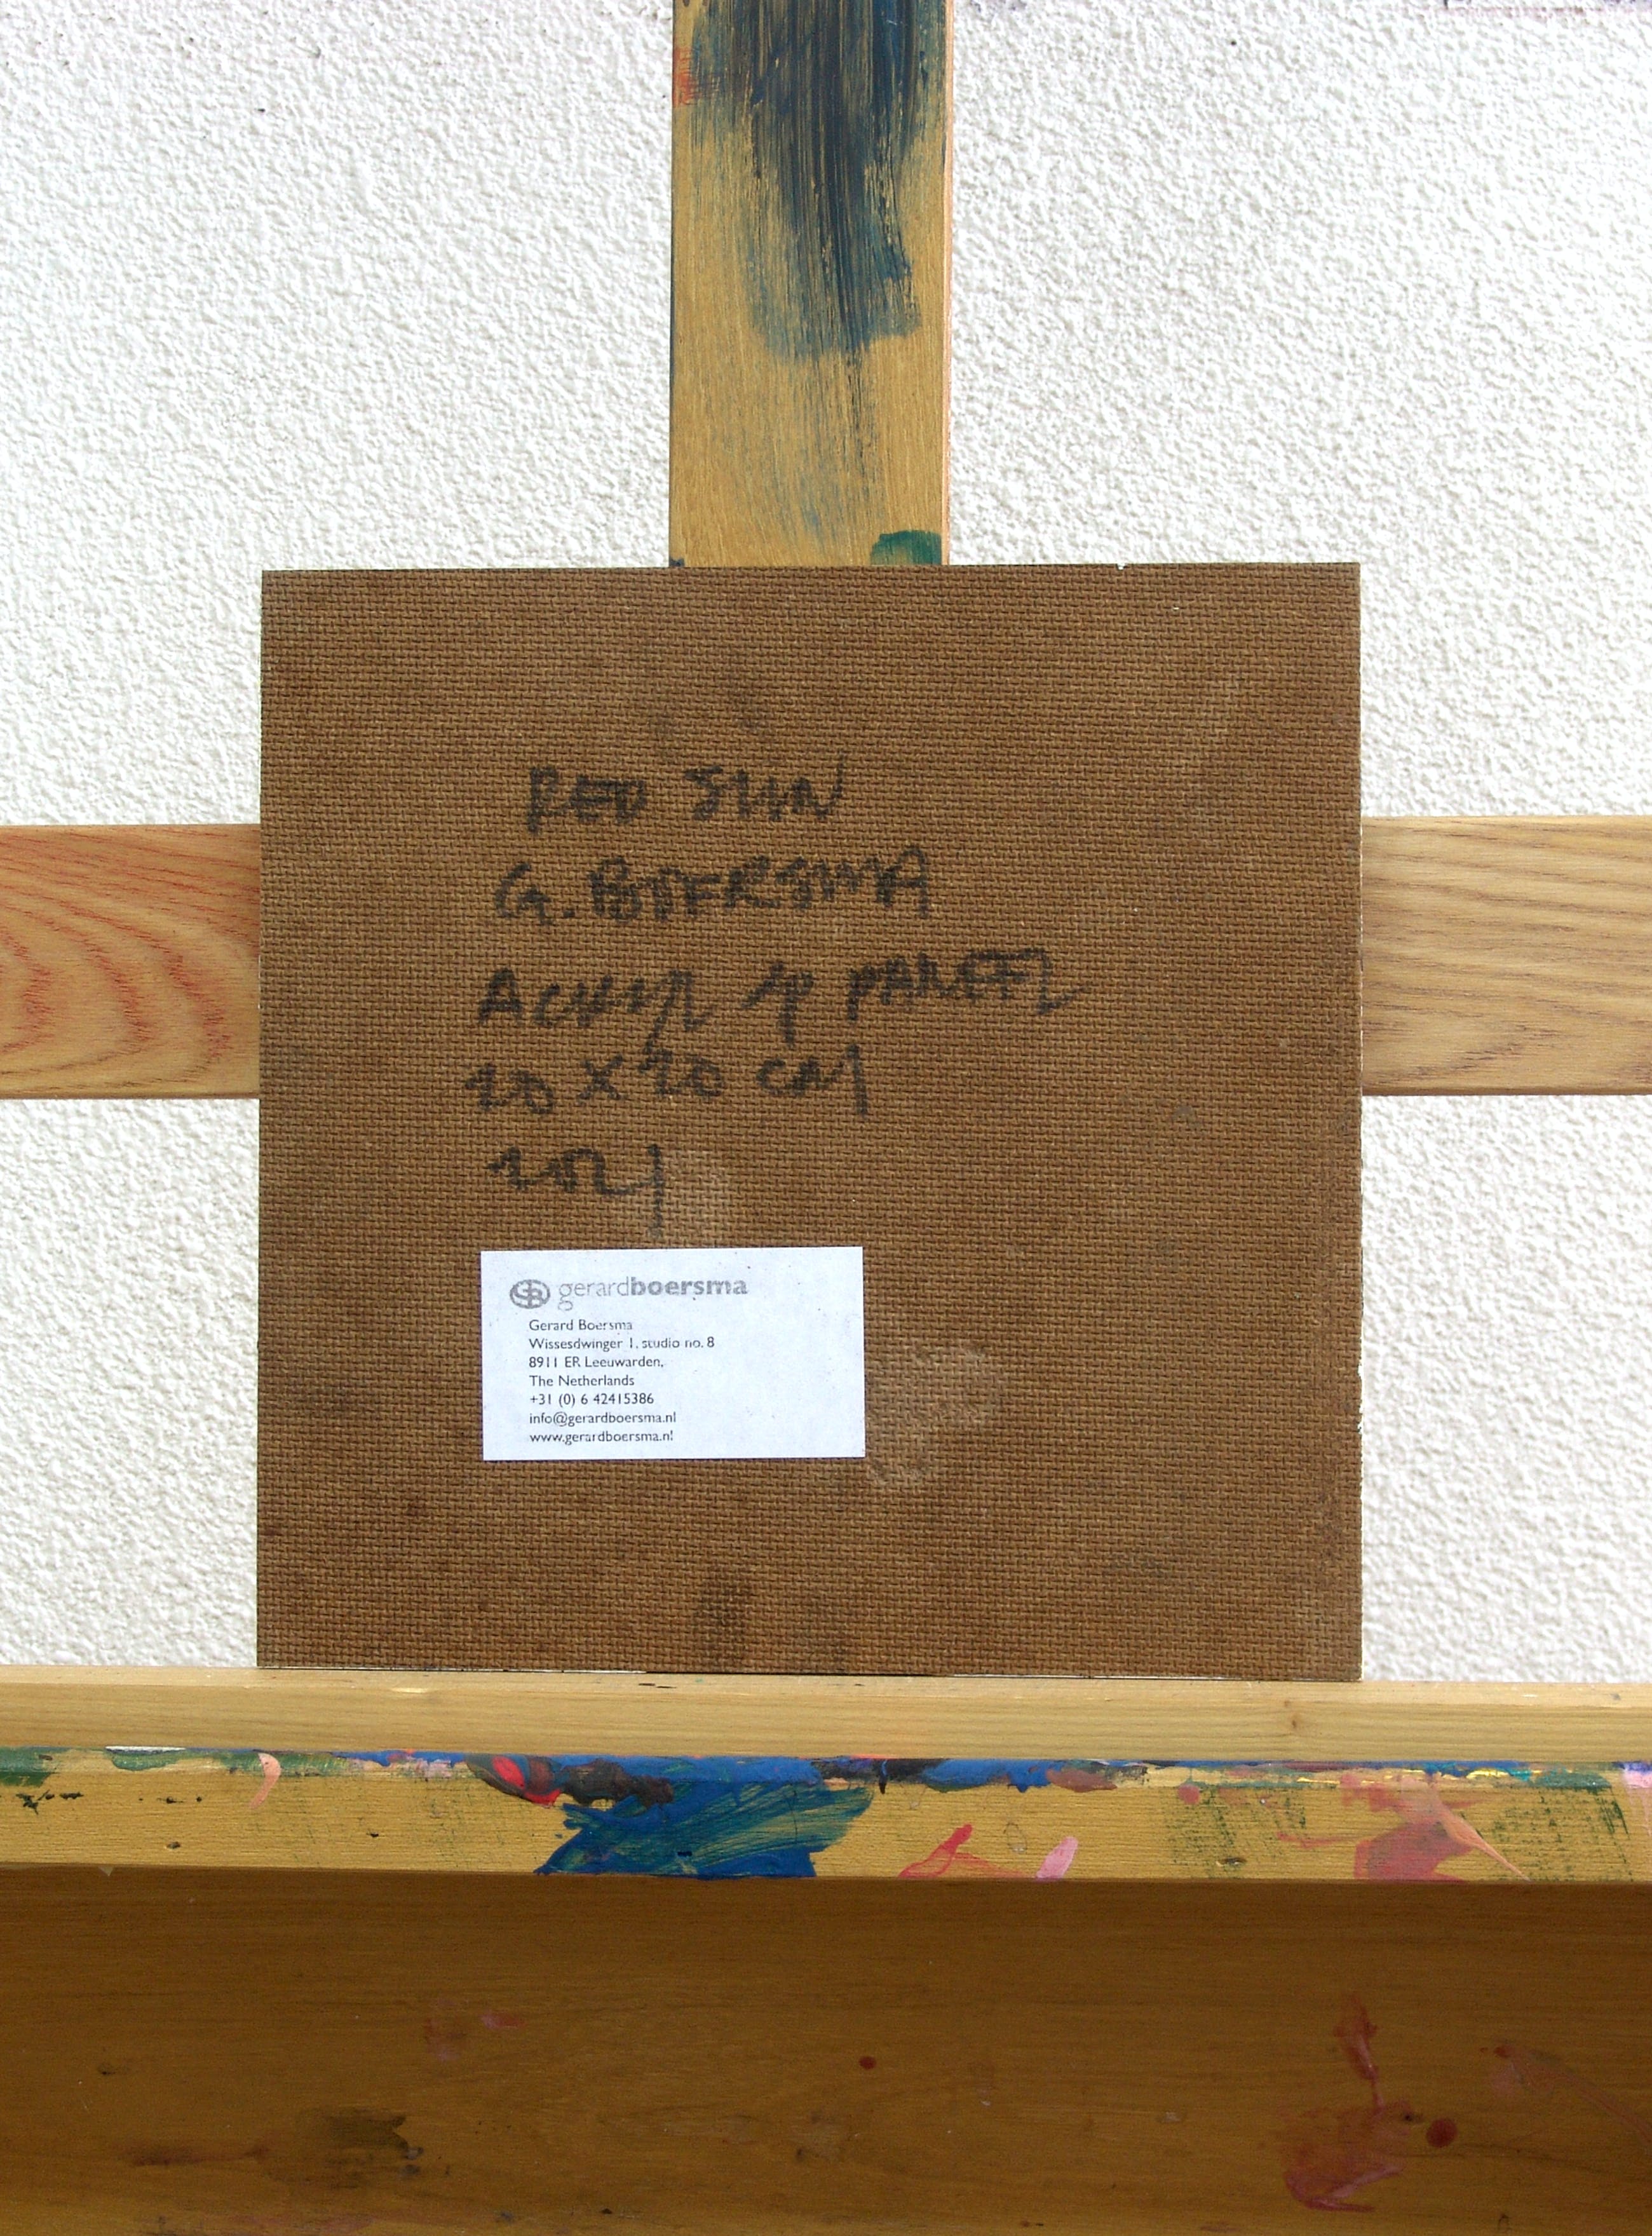 RED SUN
G. BOERSMA
ACRYL OP PANEEL
20 X 20 CM
2021
gerardboersma
Gerard Boersma
Wissesdwinger 1, studio no. 8
8911 ER Leeuwarden,
The Netherlands
+31 (0) 6 42415386
info@gerardboersma.nl
www.gerardboersma.nl